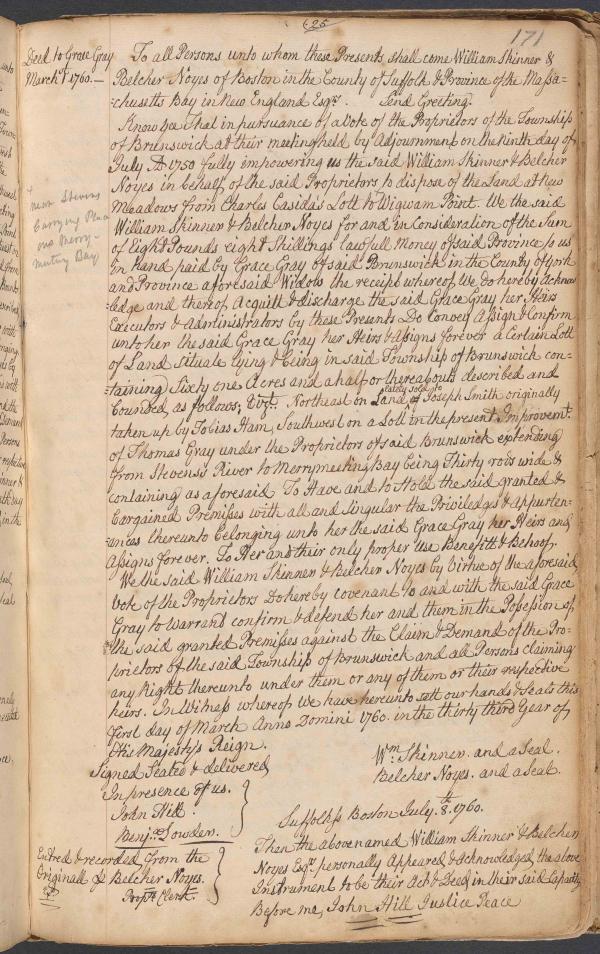 625
171
Deed to Grace Gray
March 1st 1760.—
To all Persons unto whom these Presents shall come William Skinner &
Belcher Noyes of Boston in the County of Suffolk & Province of the Massa-
-chusetts Bay in New England Esqrs. Send Greeting.
Know Yee That in pursuance of a Vote of the Proprietors of the Township
of Brunswick at their meeting held by Adjournment on the Ninth day of
July A 1750 fully impowering us the said William Skinner & Belcher
Noyes in behalf of the said Proprietors to dispose of the Land at new
meadows from Charles Casida's Lott to Wigwam Point. We the said
William Skinner & Belcher Noyes for and in Consideration of the Sum
of Eight Pounds eight Shillings lawfull money of said Province to us
in hand paid by Grace Gray of said Brunswick in the County of York
and Province aforesaid Widow the receipt whereof We do hereby acknow
-ledge and thereof Acquitt & discharge the said Grace Gray her Heirs
Executors & Administrators by these Presents Do Convey Assign & Confirm
unto her the said Grace Gray her Heirs & Assigns forever a Certain Lott
of Land Situate lying & being in said Township of Brunswick con-
-taining Sixty one Acres and a half or thereabouts described and
bounded as follows, Vizt. Northeast on Land lately sold to Joseph Smith originally
taken up by Tobias Ham, Southwest on a Lott in the present Improvemt.
of Thomas Gray under the Proprietors of said Brunswick extending
from Stevens's River to Merrymeeting Bay being Thirty rods wide &
containing as aforesaid To Have and to Hold the said granted &
bargained Premisses with all and Singular the Priviledges & Appurten-
-ances thereunto belonging unto her the said Grace Gray her Heirs and
Assigns forever. To Her and their only proper Use Benefitt & Behoof.
We the said William Skinner & Belcher Noyes by Virtue of the aforesaid
Vote of the Proprietors Do hereby covenant to and with the said Grace
Gray to warrand confirm & defend her and them in the Possession of
the said granted Premisses against the Claim & Demand of the Pro-
prietors of the said Township of Brunswick and all Persons claiming
any Right thereunto under them or any of them or their respective
heirs. In Witness whereof We have hereunto sett our hands & Seals this
first day of March Anno Domini 1760. in the thirty third Year of
His Majestys Reign.
near Stevens
Carrying Place
on Merry-
meeting Bay
Wm. Skinner. and a Seal.
Belcher Noyes. and a Seal.
Signed Sealed & delivered
In presence of us.
John Hill.
Benja. Dowden.
Suffolk ss Boston July. 8th. 1760.
Then the abovenamed William Skinner & Belcher
Noyes Esqrs. personally Appeared & acknowledged the above
Instrument to be their Act & Deed in their said Capacity
Before me, John Hill Justice Peace
Entred & recorded from the
Originall p Belcher Noyes.
Proprs Clerk.